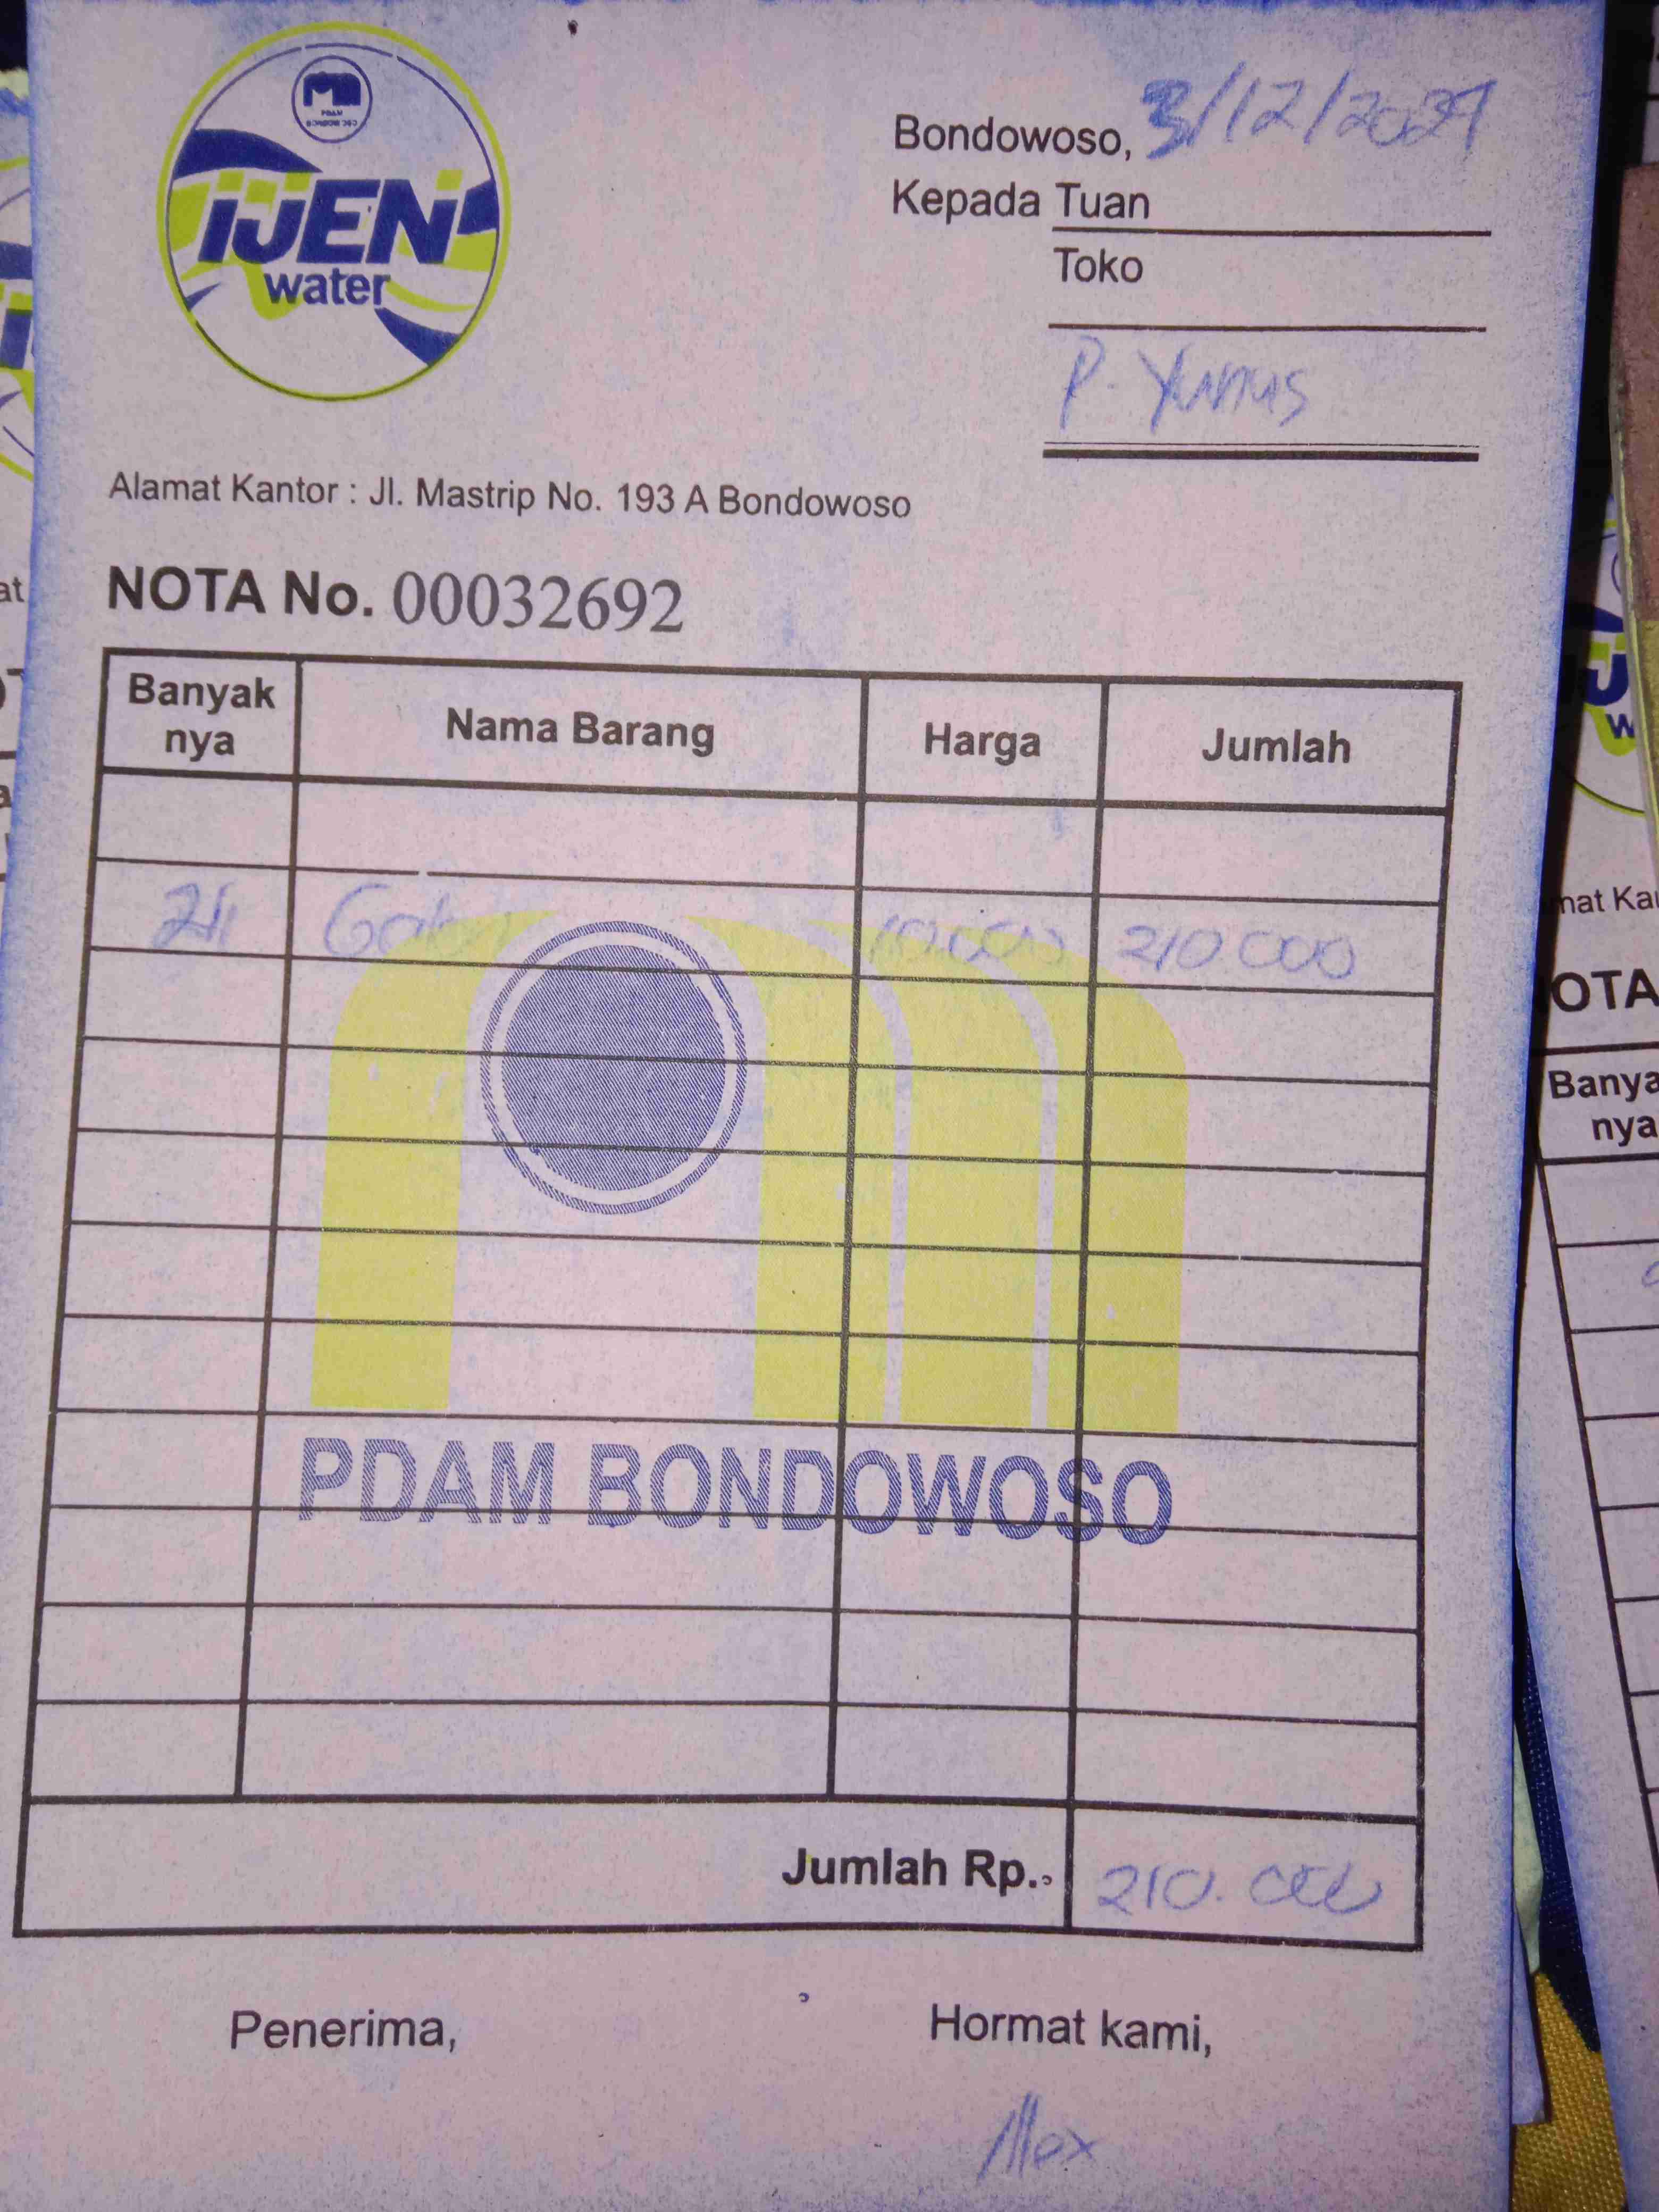 PDAM
IJEN
water
Bondowoso, 3/12/2024
Kepada Tuan
Toko
P. Yunus
Alamat Kantor : Jl. Mastrip No. 193 A Bondowoso
NOTA No. 00032692
Banyak nya Nama Barang Harga Jumlah
21 10.000 210 000
PDAM BONDOWOSO
Jumlah Rp. 210.000
Penerima, Hormat kami,
Alex